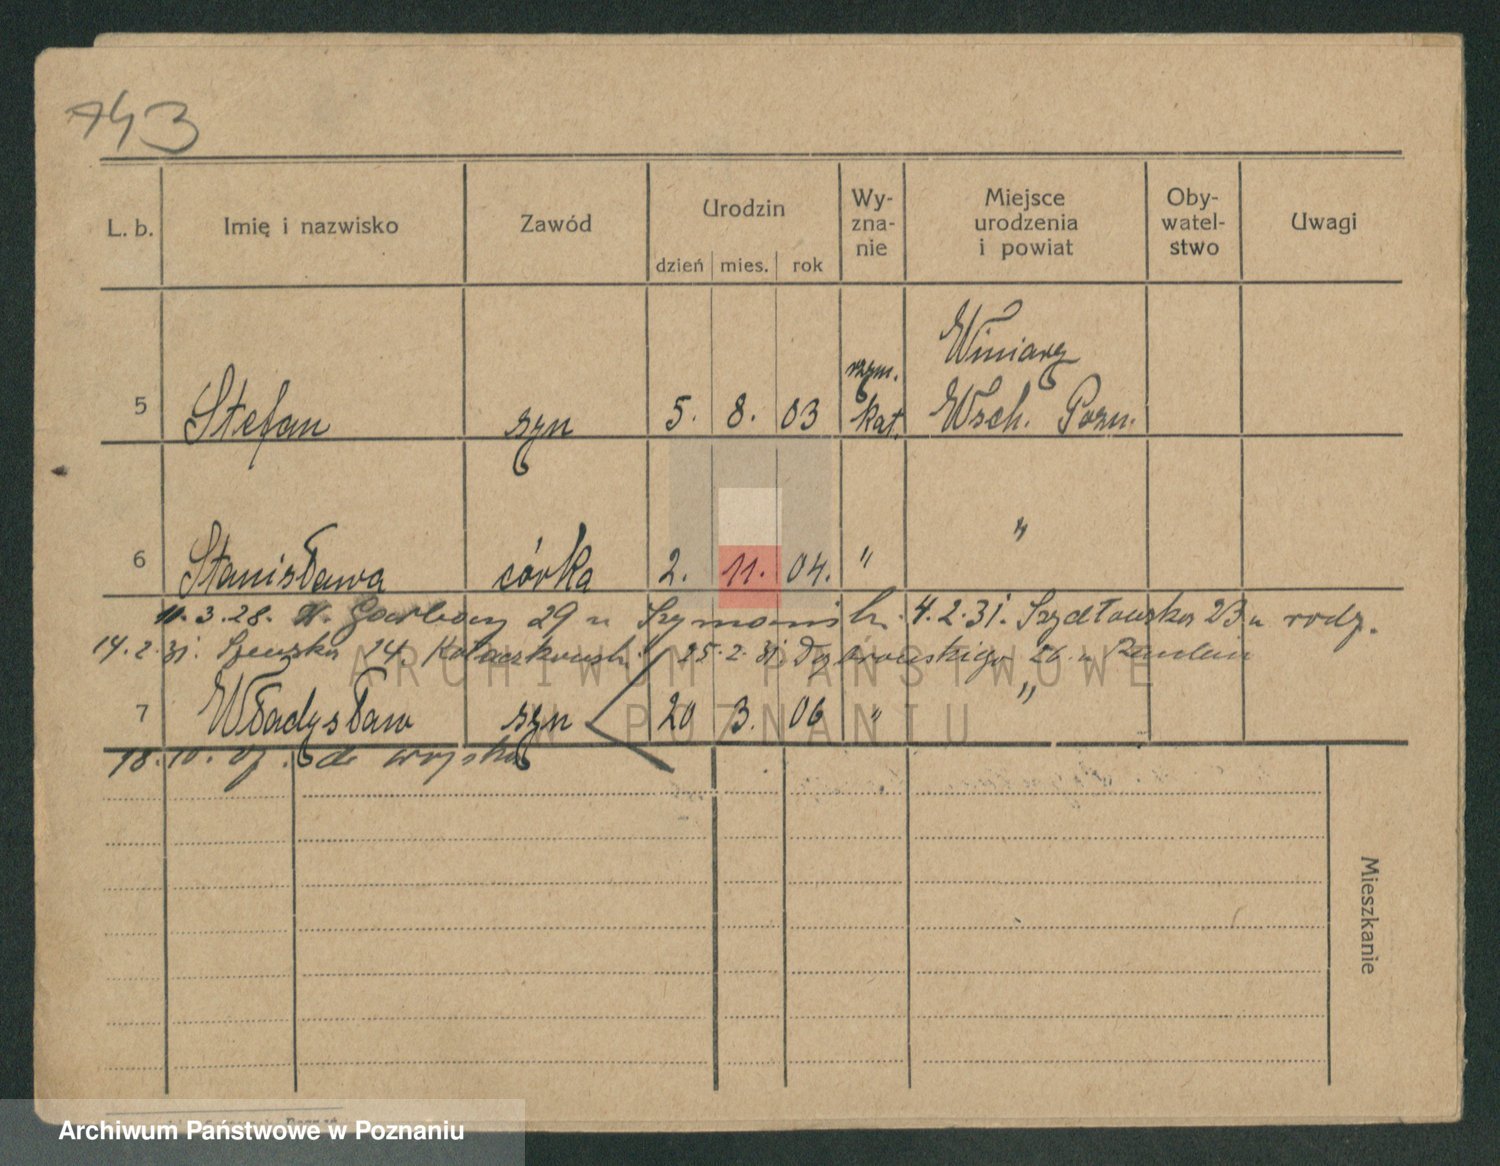 743
L. b. Imię i nazwisko Zawód Urodzin dzień mies. rok Wy-zna-nie Miejsce urodzenia i powiat Oby-watel-stwo Uwagi
Winiary
rzym.
5 Stefan syn 5. 8. 03 kat. Wsch. Pozn.
6 Stanisława córka 2. 11. 04. " "
11.3.28. 29 u 4.2.31. Szydłowska 23 u rodz.
14.2.31. Szewska 24. 25.2.31. Dąbrowskiego 26 u
ARCHIWUM PAŃSTWOWE
7 Władysław syn 20 3. 06 " "
W POZNANIU
18.10.27. do wojska
Mieszkanie
Archiwum Państwowe w Poznaniu